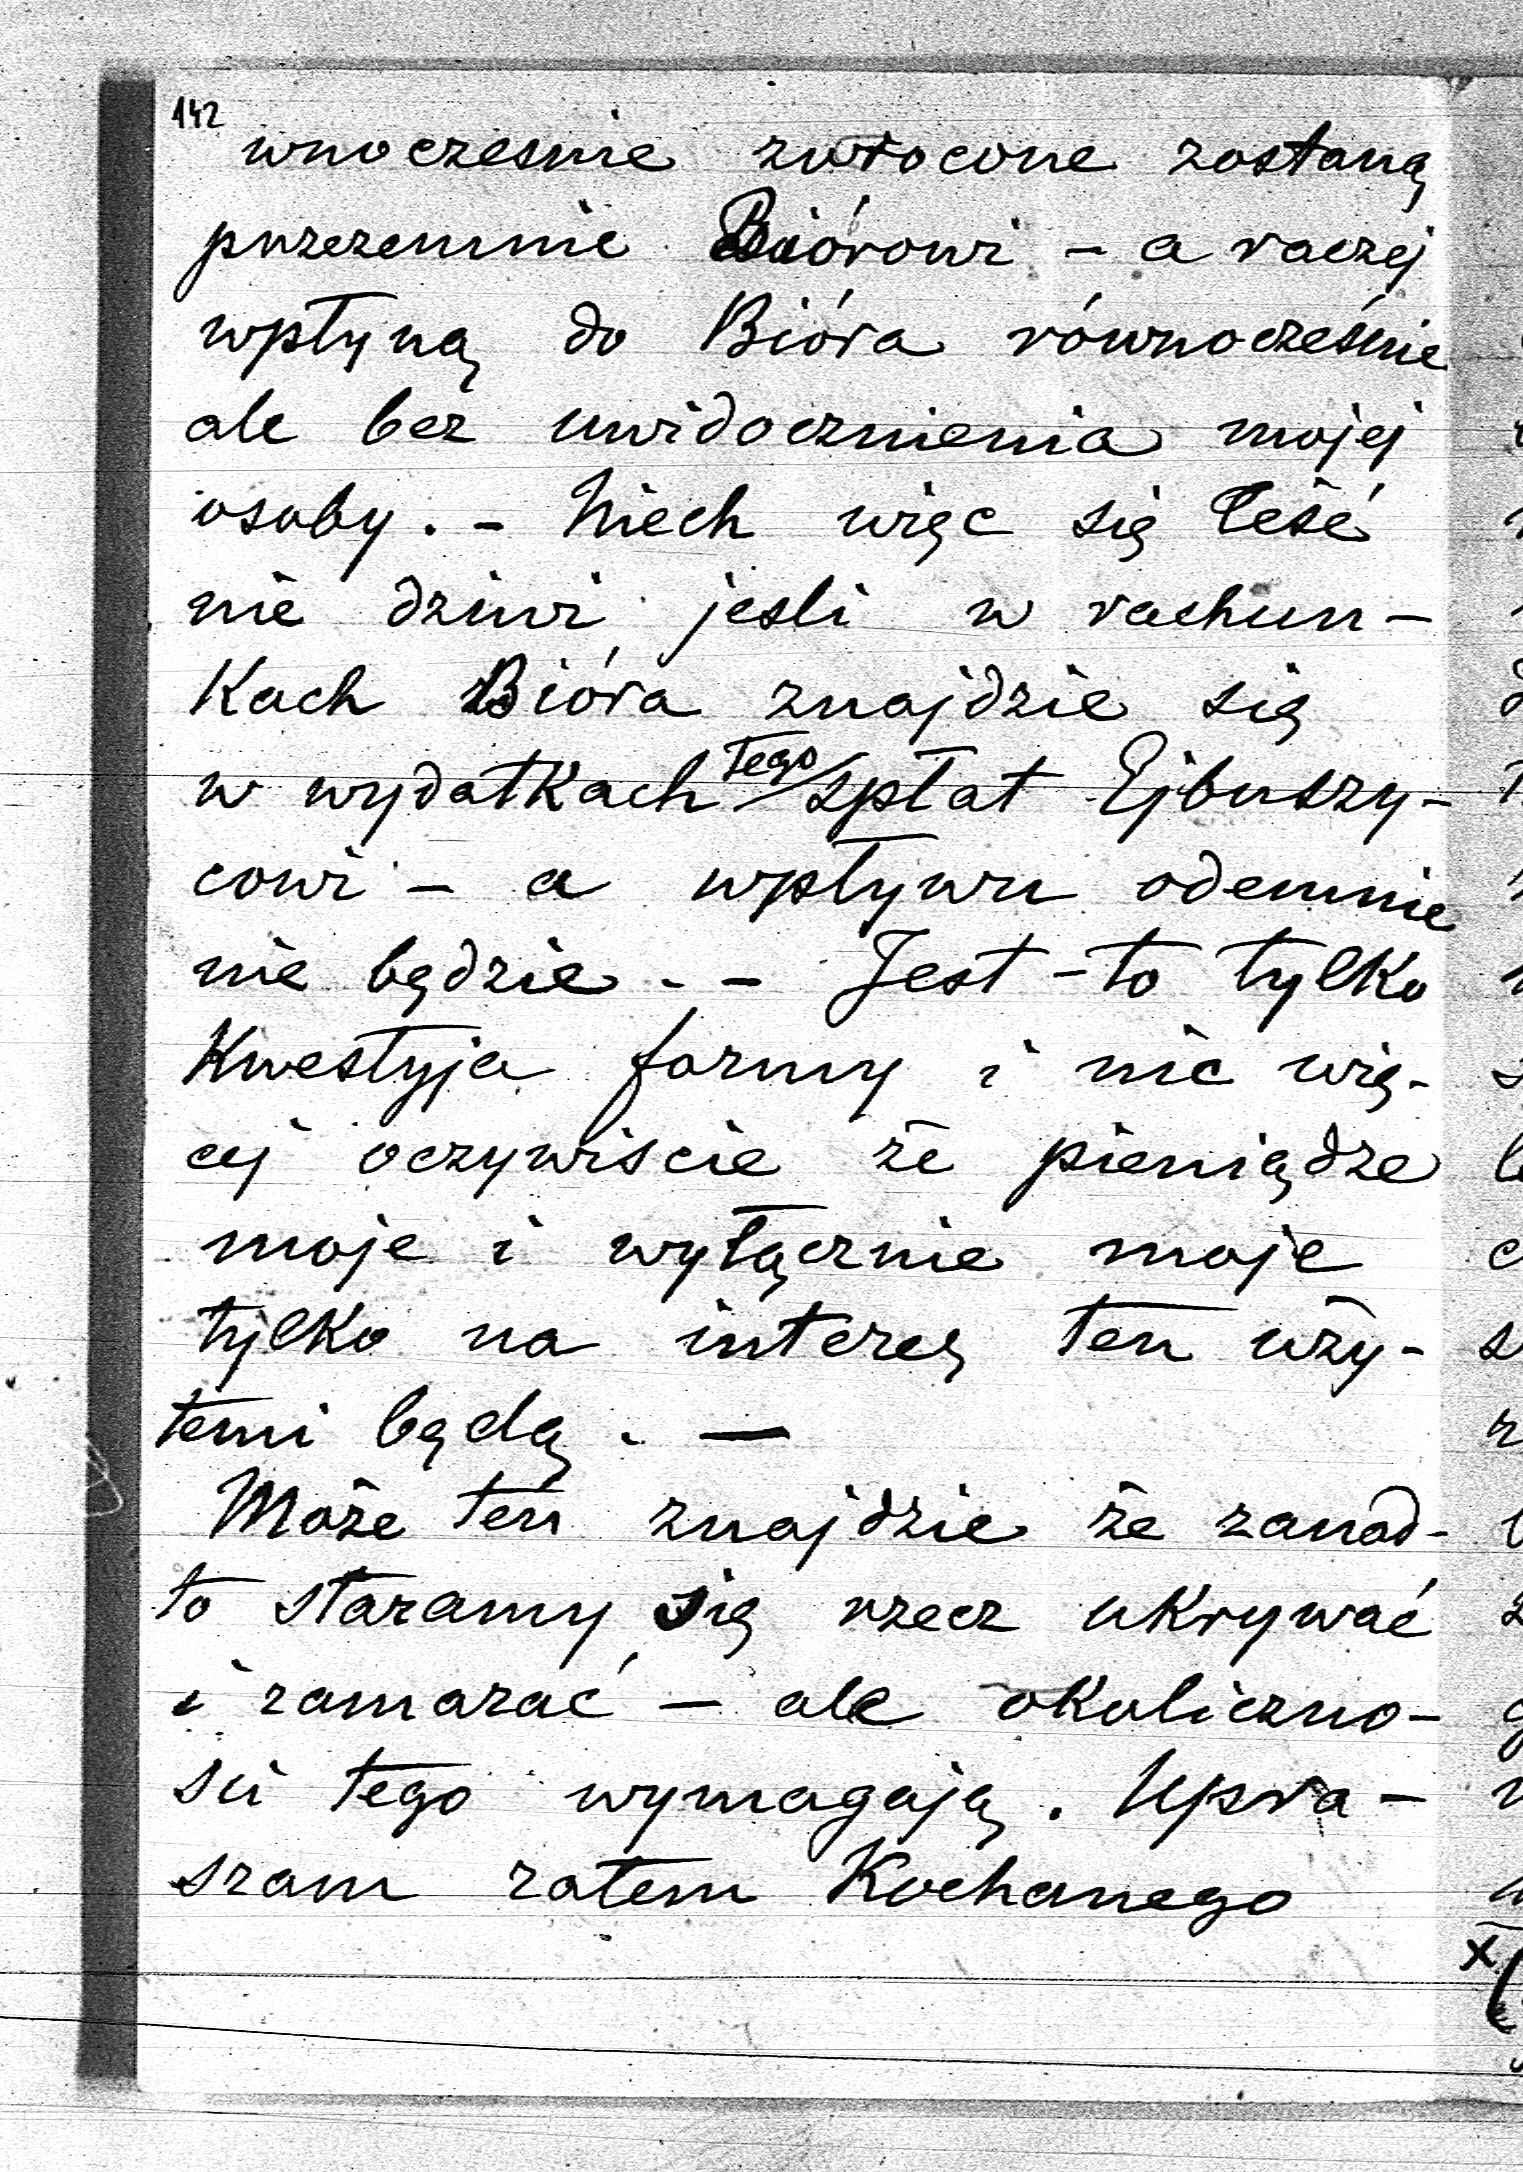 142
wnocześnie zwrócone zostaną
przezemnie Biórowi - a raczej
wpłyną do Bióra równocześnie
ale bez uwidocznienia mojej
osoby. - Niech więc się Teść
nie dziwi jesli w rachun-
kach Bióra znajdzie się
w wydatkach tego spłat Ejbuszy-
cowi - a wpływu odemnie
nie będzie. - Jest-to tylko
kwestyja formy i nic wię-
cej oczywiscie że pieniądze
moje i wyłącznie moje
tylko na interes ten uży-
temi będą. -
Może Teść znajdzie że zanad-
to staramy się rzecz ukrywać
i zamazać - ale okoliczno-
sci tego wymagają. Upra-
szam zatem Kochanego